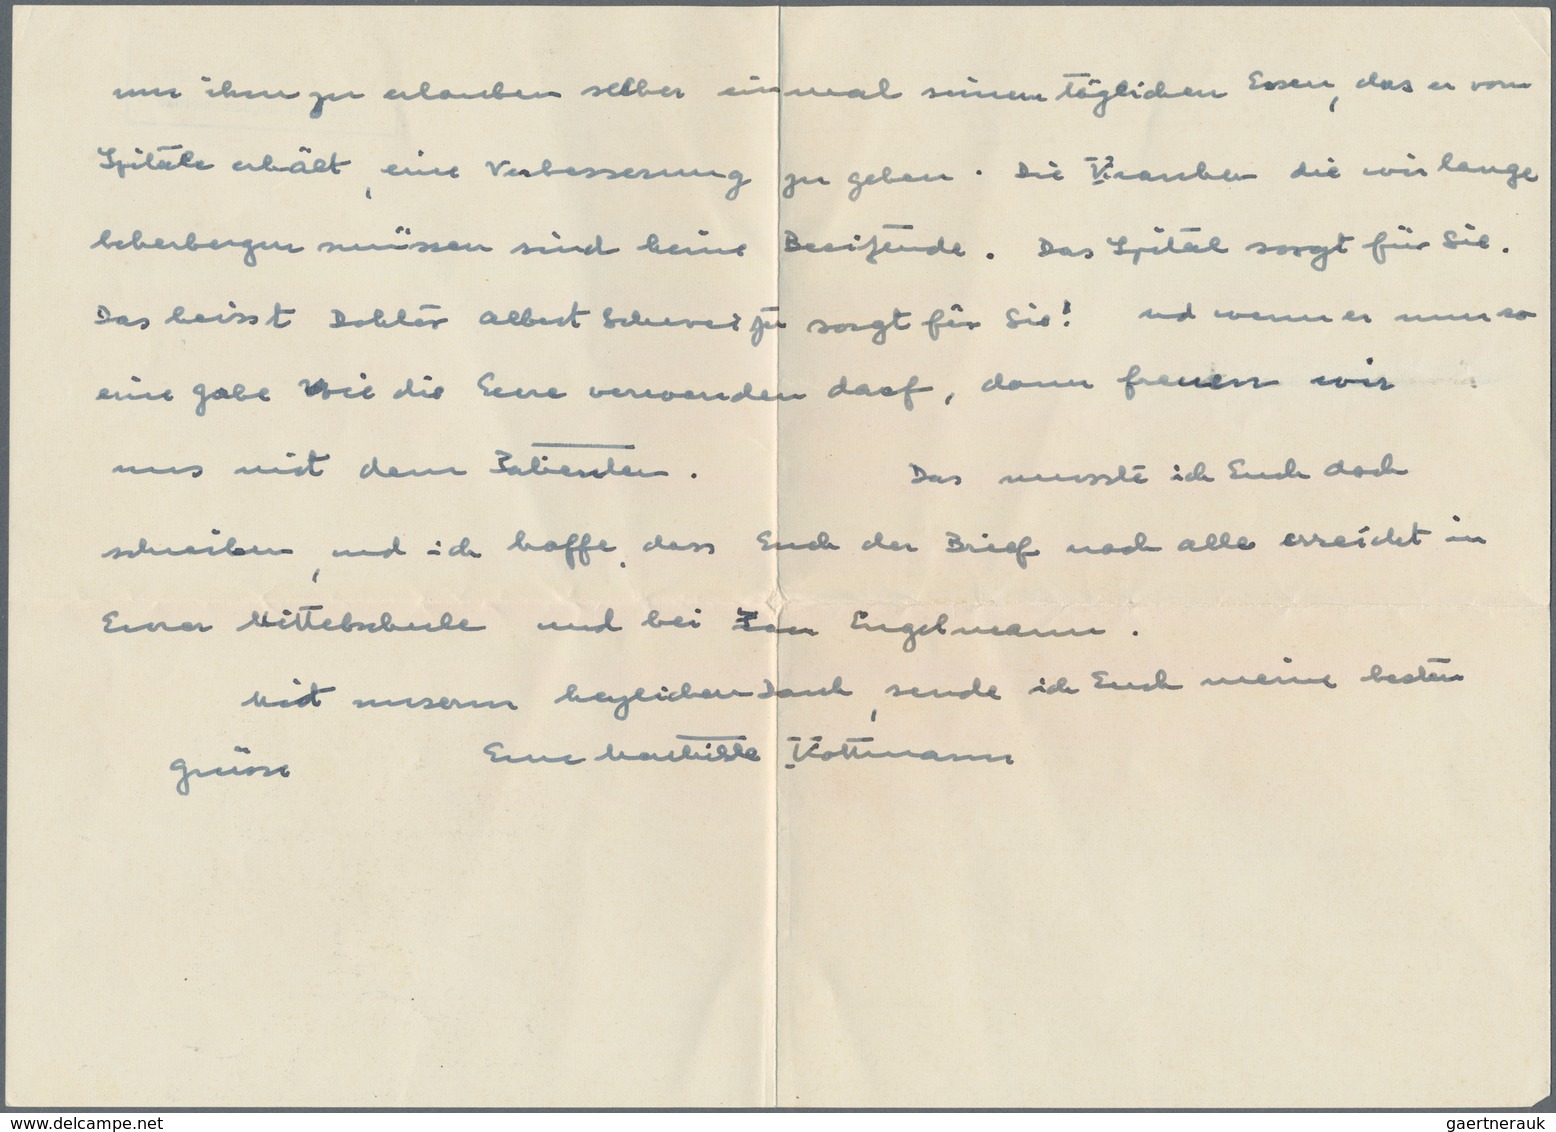 um ihm zu erlauben selber einmal seinem täglichen Essen, das er vom
Spitale erhält, eine Verbesserung zu geben. Die Kranken die wir lange
beherbergen müssen sind keine Besitzende. Das Spital sorgt für Sie.
Das heisst Doktor Albert Schweitzer sorgt für Sie! und wenn er nun so
eine Gabe wie die Eure verwenden darf, dann freuen wir
uns mit dem Patienten. Das musste ich Euch doch
schreiben, und ich hoffe, dass Euch der Brief noch alle erreicht in
Eurer Mittelschule und bei Engelmann.
Mit unserm herzlichen Dank, sende ich Euch meine besten
Grüsse Eure Mathilde Kottmann
gaertnerauk
delcampe.net